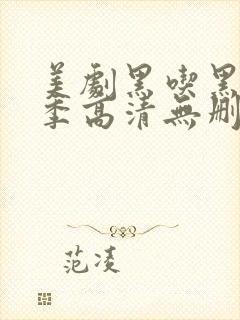 美劇黑喫黑
季高清無刪
范凌